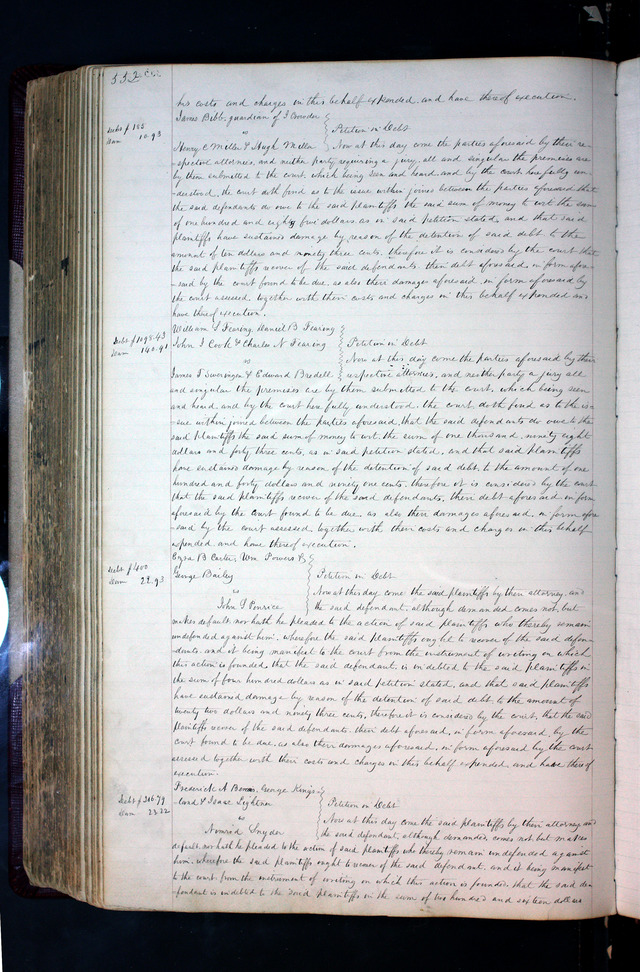 552
his costs and charges in this behalf expended and have thereof execution.
James Bibb, guardian of J
Debt $185
Dam 10.93
vs
Petition in Debt
Henry C Miller & Hugh Miller
Now at this day come the parties aforesaid by their re-
-spective attornies, and neither party requiring a jury, all and singular the premises are
by them submitted to the court which being seen and heard, and by the court here fully un-
derstood, the court doth find as to the issue within joined between the parties aforesaid that
the said defendants do owe to the said plaintiffs the said sum of money to wit the sum
of one hundred and eighty five dollars as in said petition stated, and that said
plaintiffs have sustained damage by reason of the detention of said debt, to the
amount of ten dollars and ninety three cents, therefore it is considered by the court that
the said plaintiffs recover of the said defendants, their debt aforesaid, in form afore-
-said by the court found to be due, as also their damages aforesaid in form aforesaid by
the court assessed, together with their costs and charges in this behalf expended and
have thereof execution.
William L Fearing Daniel B Fearing
Debt $1098.43
Dam 140.91
John J Cook & Charles N Fearing
Petition in Debt
vs
Now at this day come the parties aforesaid by their
James T Swearingen & Edward Bredell
respective attornies, and neither party a jury all
and singular the premises are by them submitted to the court, which being seen
and heard, and by the court here fully understood, the court doth find as to the is-
sue within joined between the parties aforesaid, that the said defendants do owe to the
said plaintiffs the said sum of money to wit, the sum of one thousand, ninety eight
dollars and forty three cents, as in said petition stated, and that said plaintiffs
have sustained damage by reason of the detention of said debt, to the amount of one
hundred and forty dollars and ninety one cents. therefore it is considered by the court
that the said plaintiffs recover of the said defendants, their debt aforesaid in form
aforesaid by the court found to be due, as also their damages aforesaid, in form afore
-said by the court assessed, together with their costs and charges in this behalf
expended and have thereof execution.
Ezra B Carter, Wm Powers &
Debt $400
Dam 22.93
George Bailey
Petition in Debt
vs
Now at this day come the said plaintiffs by their attorney and
John S
the said defendant although demanded comes not, but
makes default, nor hath he pleaded to the action of said plaintiffs who thereby remain
undefended against him, wherefore the said plaintiffs ought to recover of the said defen-
dants. and it being manifest to the court from the instrument of writing on which
this action is founded, that the said defendant, is indebted to the said plaintiffs in
the sum of four hundred dollars as in said petition stated, and that said plaintiffs
have sustained damage by reason of the detention of said debt, to the amount of
twenty two dollars and ninety three cents, therefore it is considered by the court, that the said
plaintiffs recover of the said defendants, their debt aforesaid, in form aforesaid, by the
court found to be due, as also their damages aforesaid, in form aforesaid by the court
assessed together with their costs and charges in this behalf expended, and have thereof
execution.
Frederick A George Kings-
Debt $216.79
Dam 23.22
-land & Isaac Lightner
Petition in Debt
vs
Now at this day come the said plaintiffs by their attorney and
Snyder
the said defendant, although demanded, comes not, but makes
default, nor hath he pleaded to the action of said plaintiffs who thereby remain undefended against
him, wherefore the said plaintiffs ought to recover of the said defendant, and it being manifest
to the court, from the instrument of writing on which this action is founded, that the said de-
fendant is indebted to the said plaintiffs in the sum of two hundred and sixteen dollars